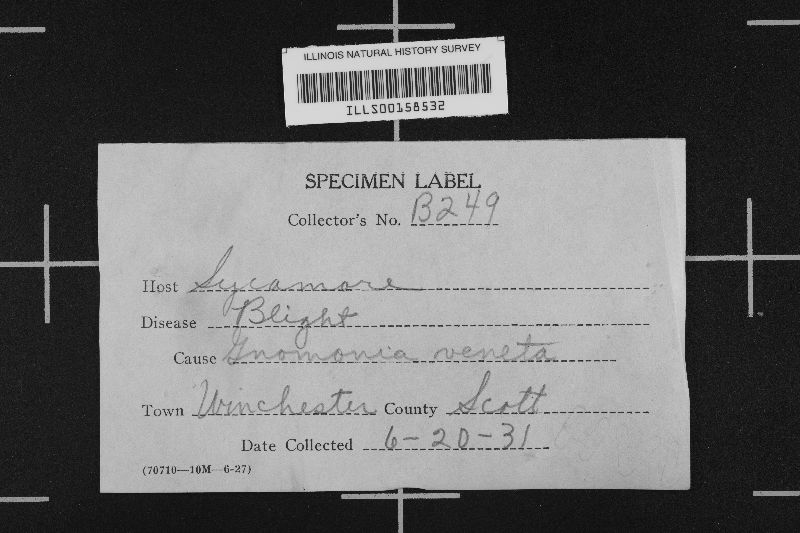 ILLINOIS NATURAL HISTORY SURVEY
ILLS00158532
SPECIMEN LABEL
Collector's No. B249
Host Sycamore
Disease Blight
Cause Gnomonia veneta
Town Winchester County Scott
Date Collected 6-20-31
(70710—10M—6-27)